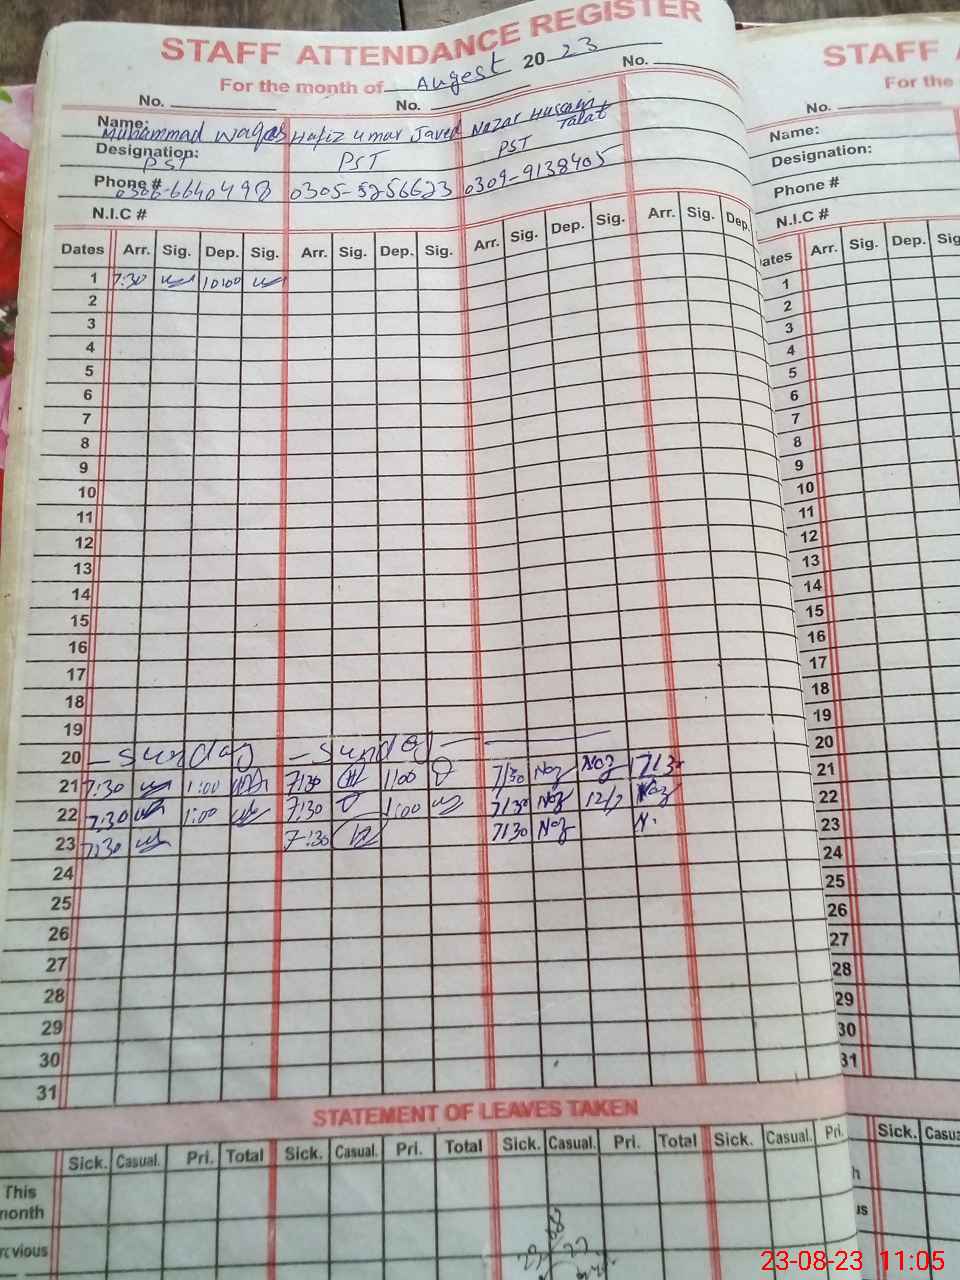 STAFF ATTENDANCE REGISTER
For the month of Augest 2023
No. No. No.
Name: Muhammad Waqas Hafiz Umar Javed Nazar Hussain Talat
Designation: PST PST PST
Phone # 0306-6640498 0305-5256623 0309-9138405
N.I.C #
Dates Arr. Sig. Dep. Sig. Arr. Sig. Dep. Sig. Arr. Sig. Dep. Sig. Arr. Sig. Dep.
1 7:30 10:00
2
3
4
5
6
7
8
9
10
11
12
13
14
15
16
17
18
19
20 - Sunday - Sunday
21 7:30 1:00 7:30 1:00 7:30 Naz Naz
22 7:30 1:00 7:30 1:00 7:30 Naz Naz
23 7:30 7:30 7:30 Naz
24
25
26
27
28
29
30
31
STATEMENT OF LEAVES TAKEN
Sick. Casual. Pri. Total Sick. Casual. Pri. Total Sick. Casual. Pri. Total Sick. Casual. Pri.
This
month
STAFF A
For the
No.
Name:
Designation:
Phone #
N.I.C #
Dates Arr. Sig. Dep. Sig
1
2
3
4
5
6
7
8
9
10
11
12
13
14
15
16
17
18
19
20
21
22
23
24
25
26
27
28
29
30
31
Sick. Casua
23-08-23 11:05